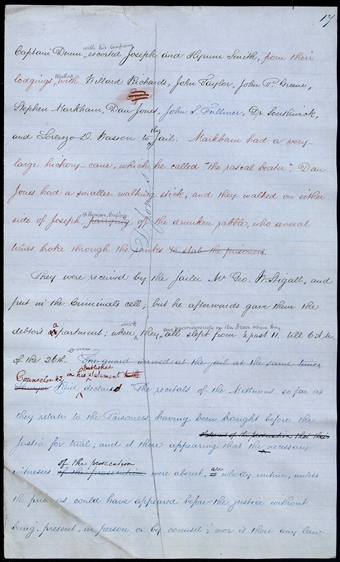 17
with his company
Captain Dunn, escorted Joseph and Hyrum Smith, from their
lodgings, with Willard Richards, John Taylor, John P. Greene,
Stephen Markham, Dan Jones, John S. Fullmer, Dr Southwick,
and Lorenzo D. Wasson to the jail. Markham had a very
large hickory cane, which he called "the rascal beater". Dan
Jones had a smaller walking stick, and they walked on either
side of Joseph, & Hyrum, keeping off the drunken rabble, who several
times broke through the ranks to stab the prisoners.
They were received by the jailer Mr Geo. W. Stigall, and
put in the Criminal's cell; but he afterwards gave them the
debtor's apartment; where they, all slept from ½ past 11. till 6 a.m.
of the 26th. The guard arrived at the jail at the same time
Counselor published
in his statement
Reid declared The recitals of the Mittimus so far as
they relate to the Prisoners having been brought before the
Justice for trial; and it there appearing that the necessary
witnesses of the prosecution were absent, are wholly untrue, unless
the prisoners could have appeared before the justice without
being present, in person or by counsel; nor is there any law